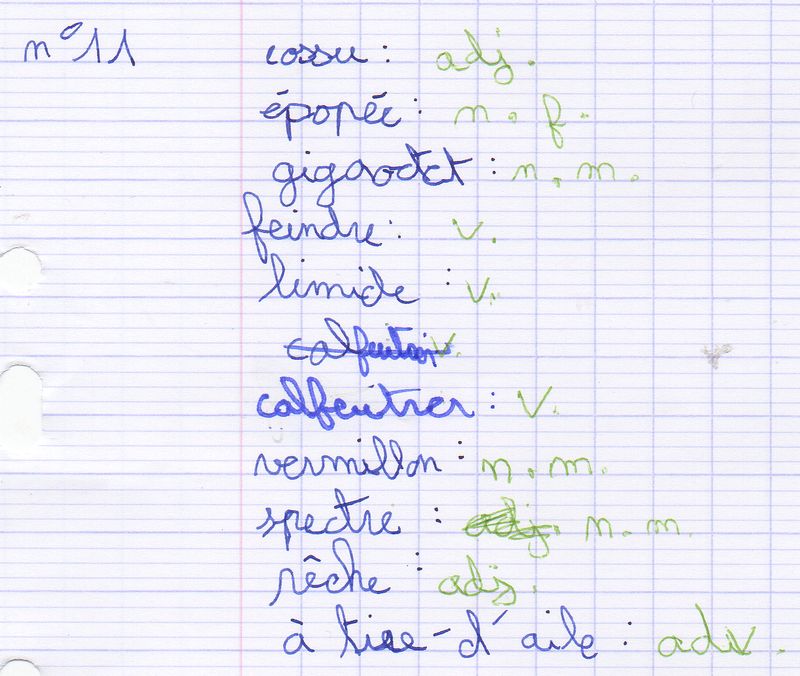 n°11 cossu : adj.
épopée : n. f.
gigaodct : n. m.
feindre : v.
limide : v.
calfeutrer : v.
vermillon : n. m.
spectre : n. m.
rêche : adj.
à tire-d'aile : adv.